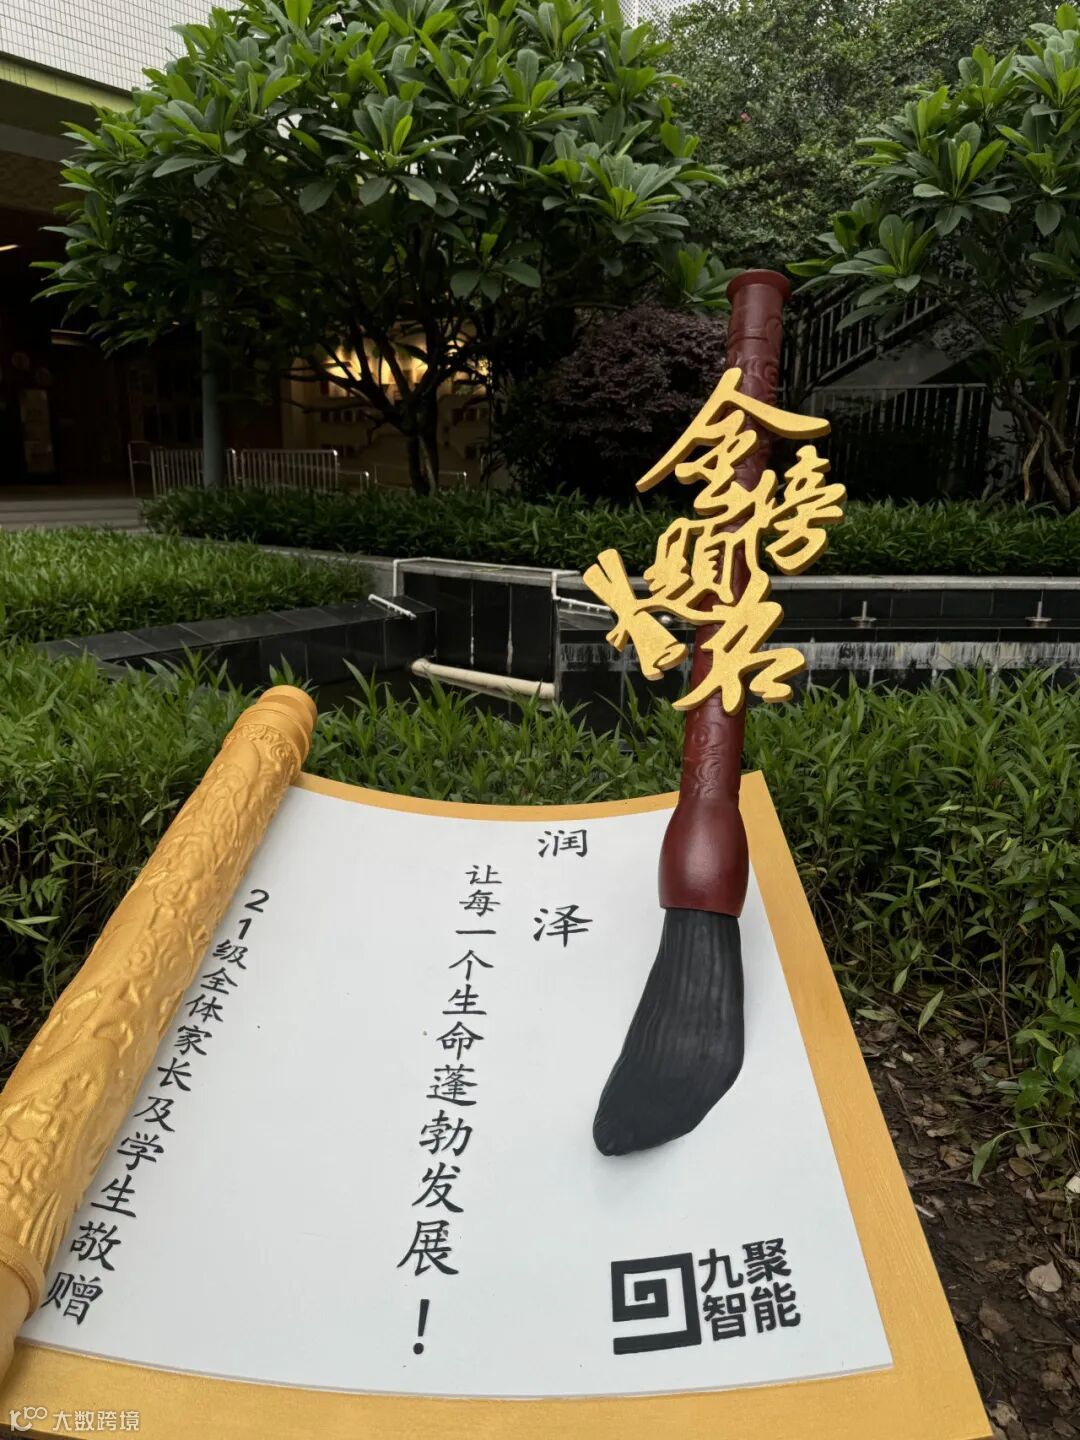 金榜题名
润泽
让每一个生命蓬勃发展！
21级全体家长及学生敬赠
九聚
智能
大数跨境